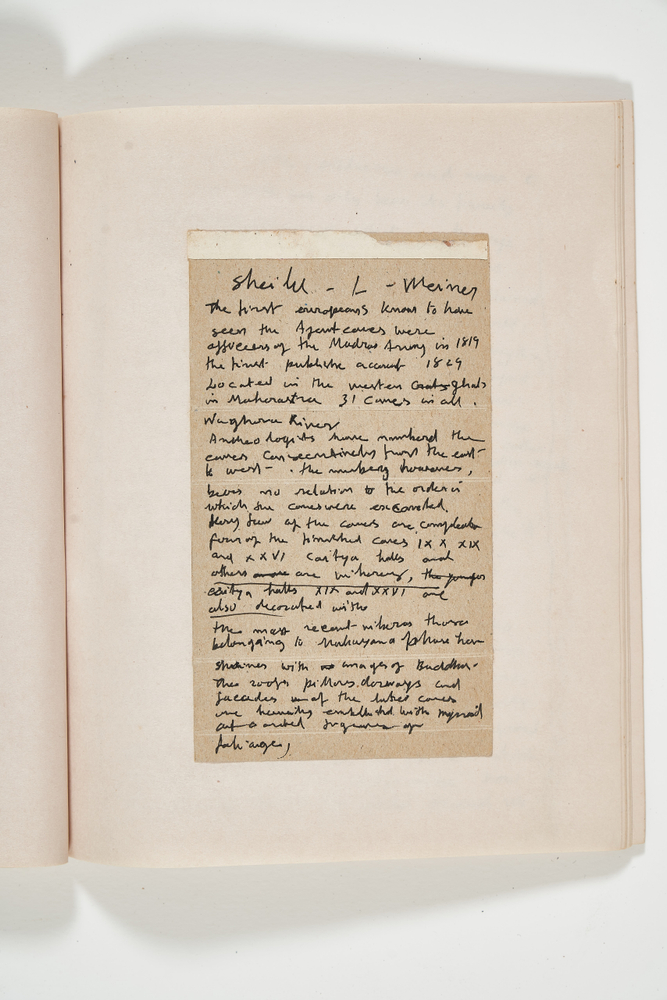 Sheikh - L - Meiners
The first europeans known to have
seen the Ajant caves were
officers of the Madras Army in 1819
the first publishe account 1829
Located in the western Ghats
in Maharastra 31 caves in all.
Waghora River
Archeologists have numberd the
caves consecutively from the east
to west. the numbery however,
bears no relation to the order in
which the caves were excavated.
Very few of the caves are complete
four of the finished caves IX X XIX
and XXVI caitya halls and
others are viharas, the younger
caitya halls XIX and XXVI are
also decorated with
the most recent viharas those
belonging to Mahayana phase have
shrines with images of Buddha.
The roofs pillars, doorways and
facades of the later caves
are heavily with myriad
figures or
foliage,